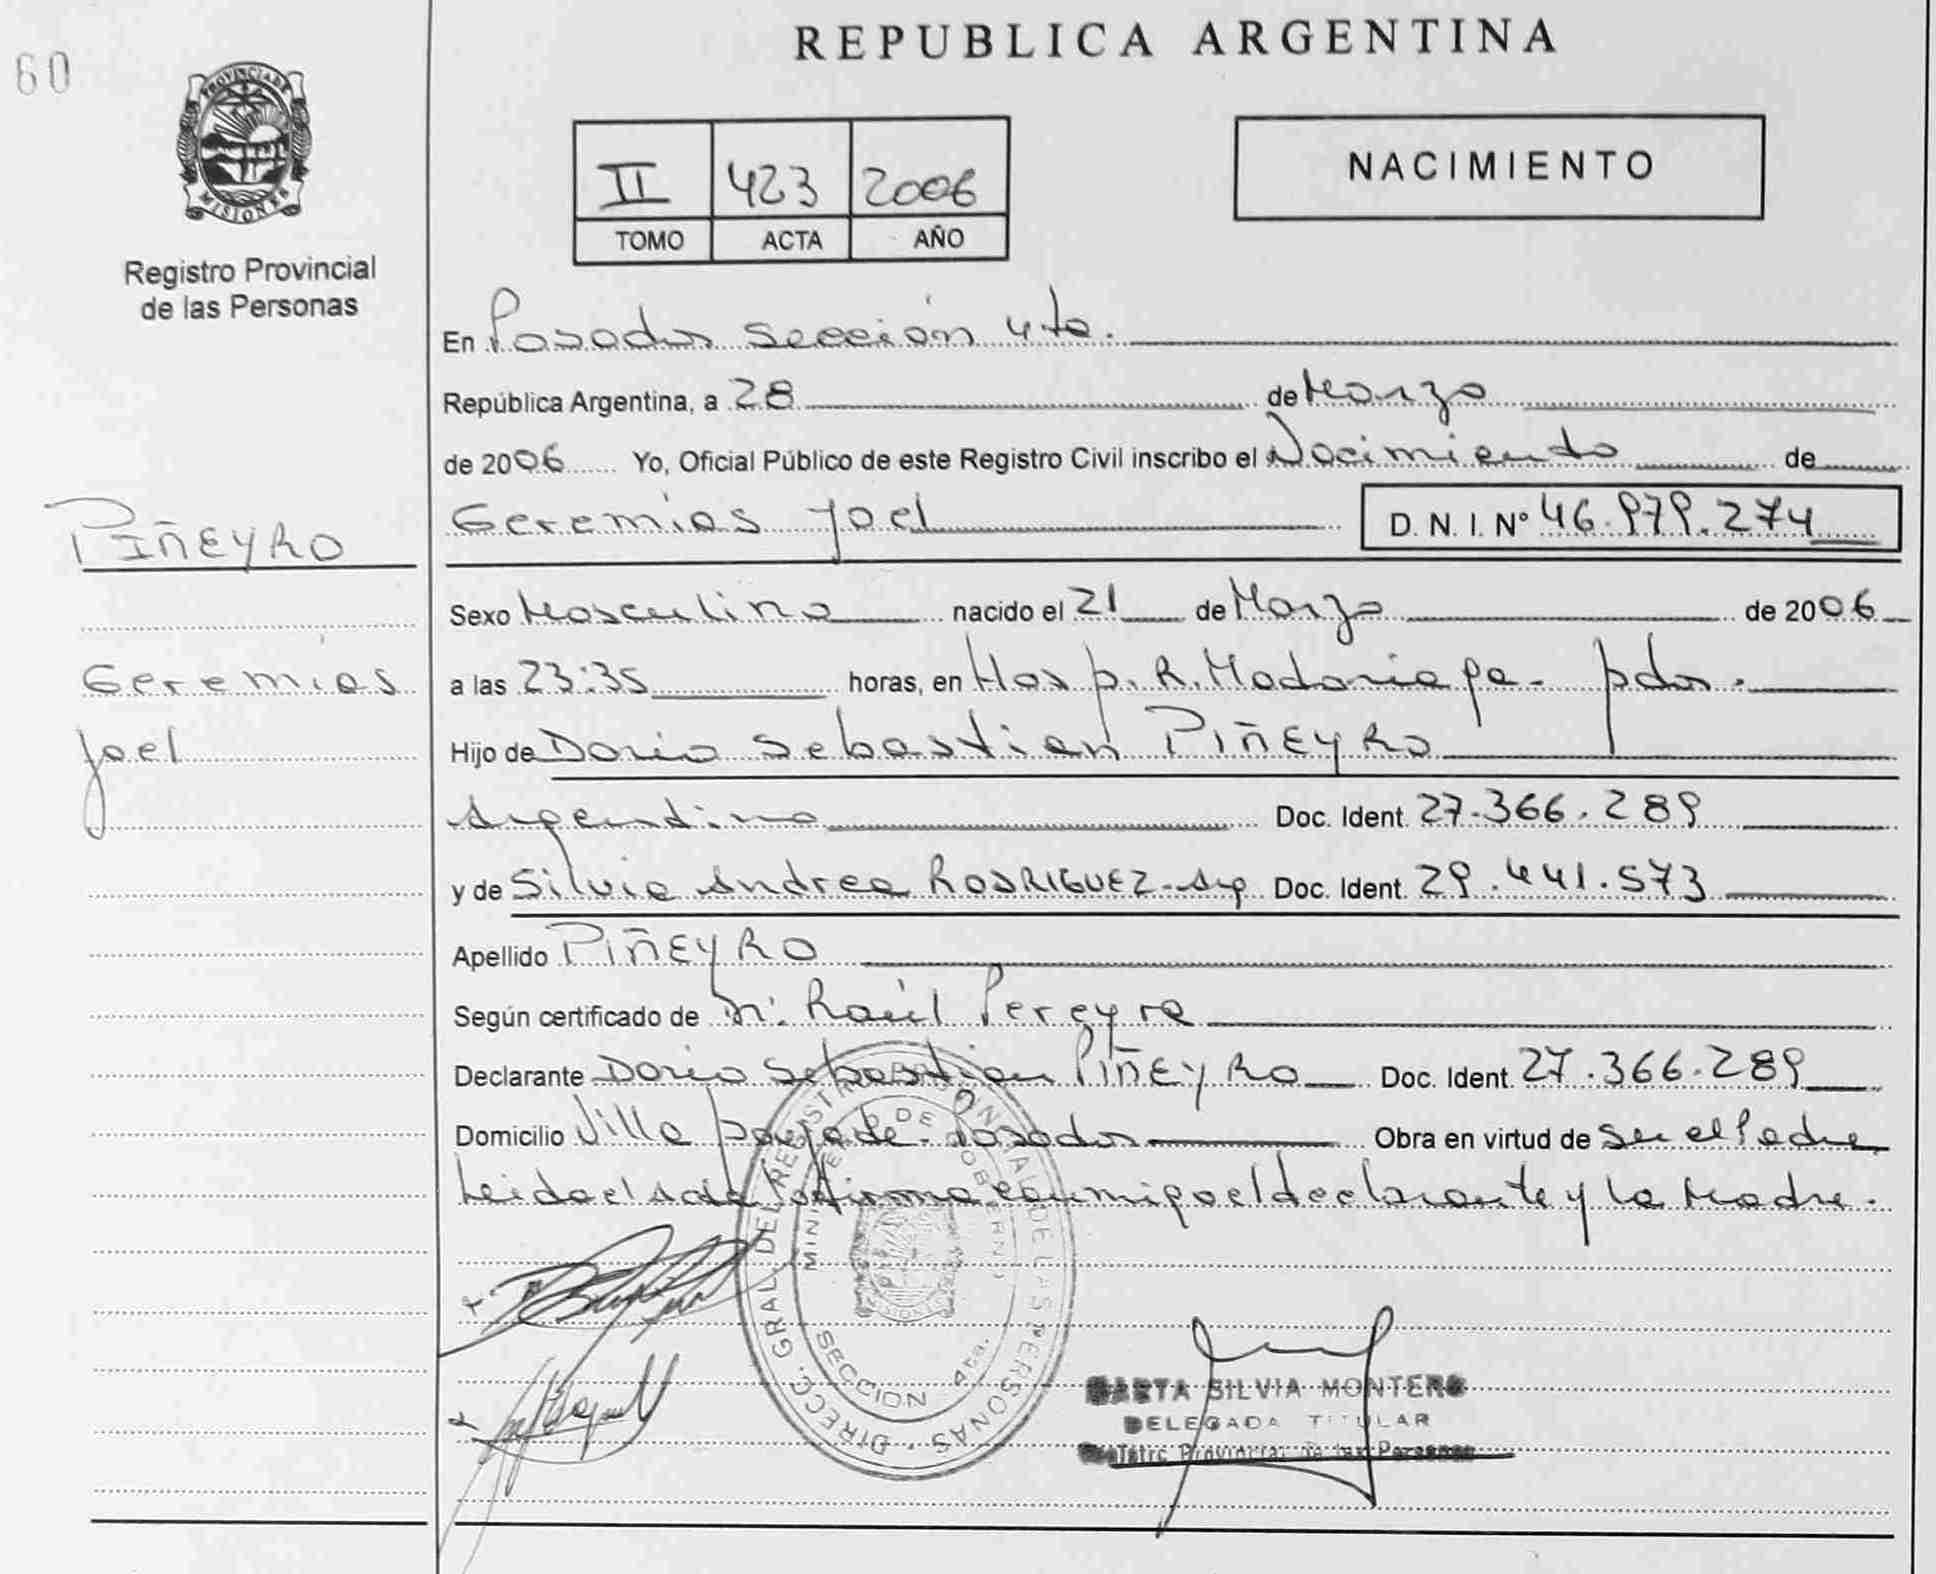 60
PROVINCIA DE
MISIONES
Registro Provincial
de las Personas
PIÑEYRO
Geremias
Joel
REPUBLICA ARGENTINA
II 423 2006
TOMO ACTA AÑO
NACIMIENTO
En Posadas sección 4ta.
República Argentina, a 28 de Marzo
de 2006 Yo, Oficial Público de este Registro Civil inscribo el Nacimiento de
Geremias Joel D. N. I. Nº 46.979.274
Sexo Masculino nacido el 21 de Marzo de 2006
a las 23:35 horas, en Hosp. R. Madariaga - pdas.
Hijo de Dario Sebastian PIÑEYRO
Argentino Doc. Ident. 27.366.289
y de Silvia Andrea RODRIGUEZ - Arg Doc. Ident. 29.441.573
Apellido PIÑEYRO
Según certificado de Dr. Raúl Pereyra
Declarante Dario Sebastian PIÑEYRO Doc. Ident. 27.366.289
Domicilio Villa Poujade - Posadas Obra en virtud de Ser el Padre
Leida el Acta la firma conmigo el declarante y la Madre.
DIRECC. GRAL. DEL REGISTRO PROVINCIAL DE LAS PERSONAS
MINISTERIO DE GOBIERNO
SECCION 4ta.
MARTA SILVIA MONTERO
DELEGADA TITULAR
Registro Provincial de las Personas